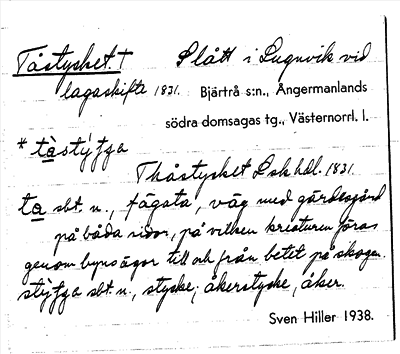 Tåstycket. † Slått i Lugnvik vid
lagaskifte 1831. Bjärtrå s:n., Ångermanlands
södra domsagas tg., Västernorrl. l.
* tàstýʃʃɐ
Thåstycket Lsk hdl. 1831.
ta sbt. n., fägata, väg med gärdesgård
på båda sidor, på vilken kreaturen föras
genom byns ägor till och från betet på skogen.
sbt. n., stycke; åkerstycke, åker.
Sven Hiller 1938.